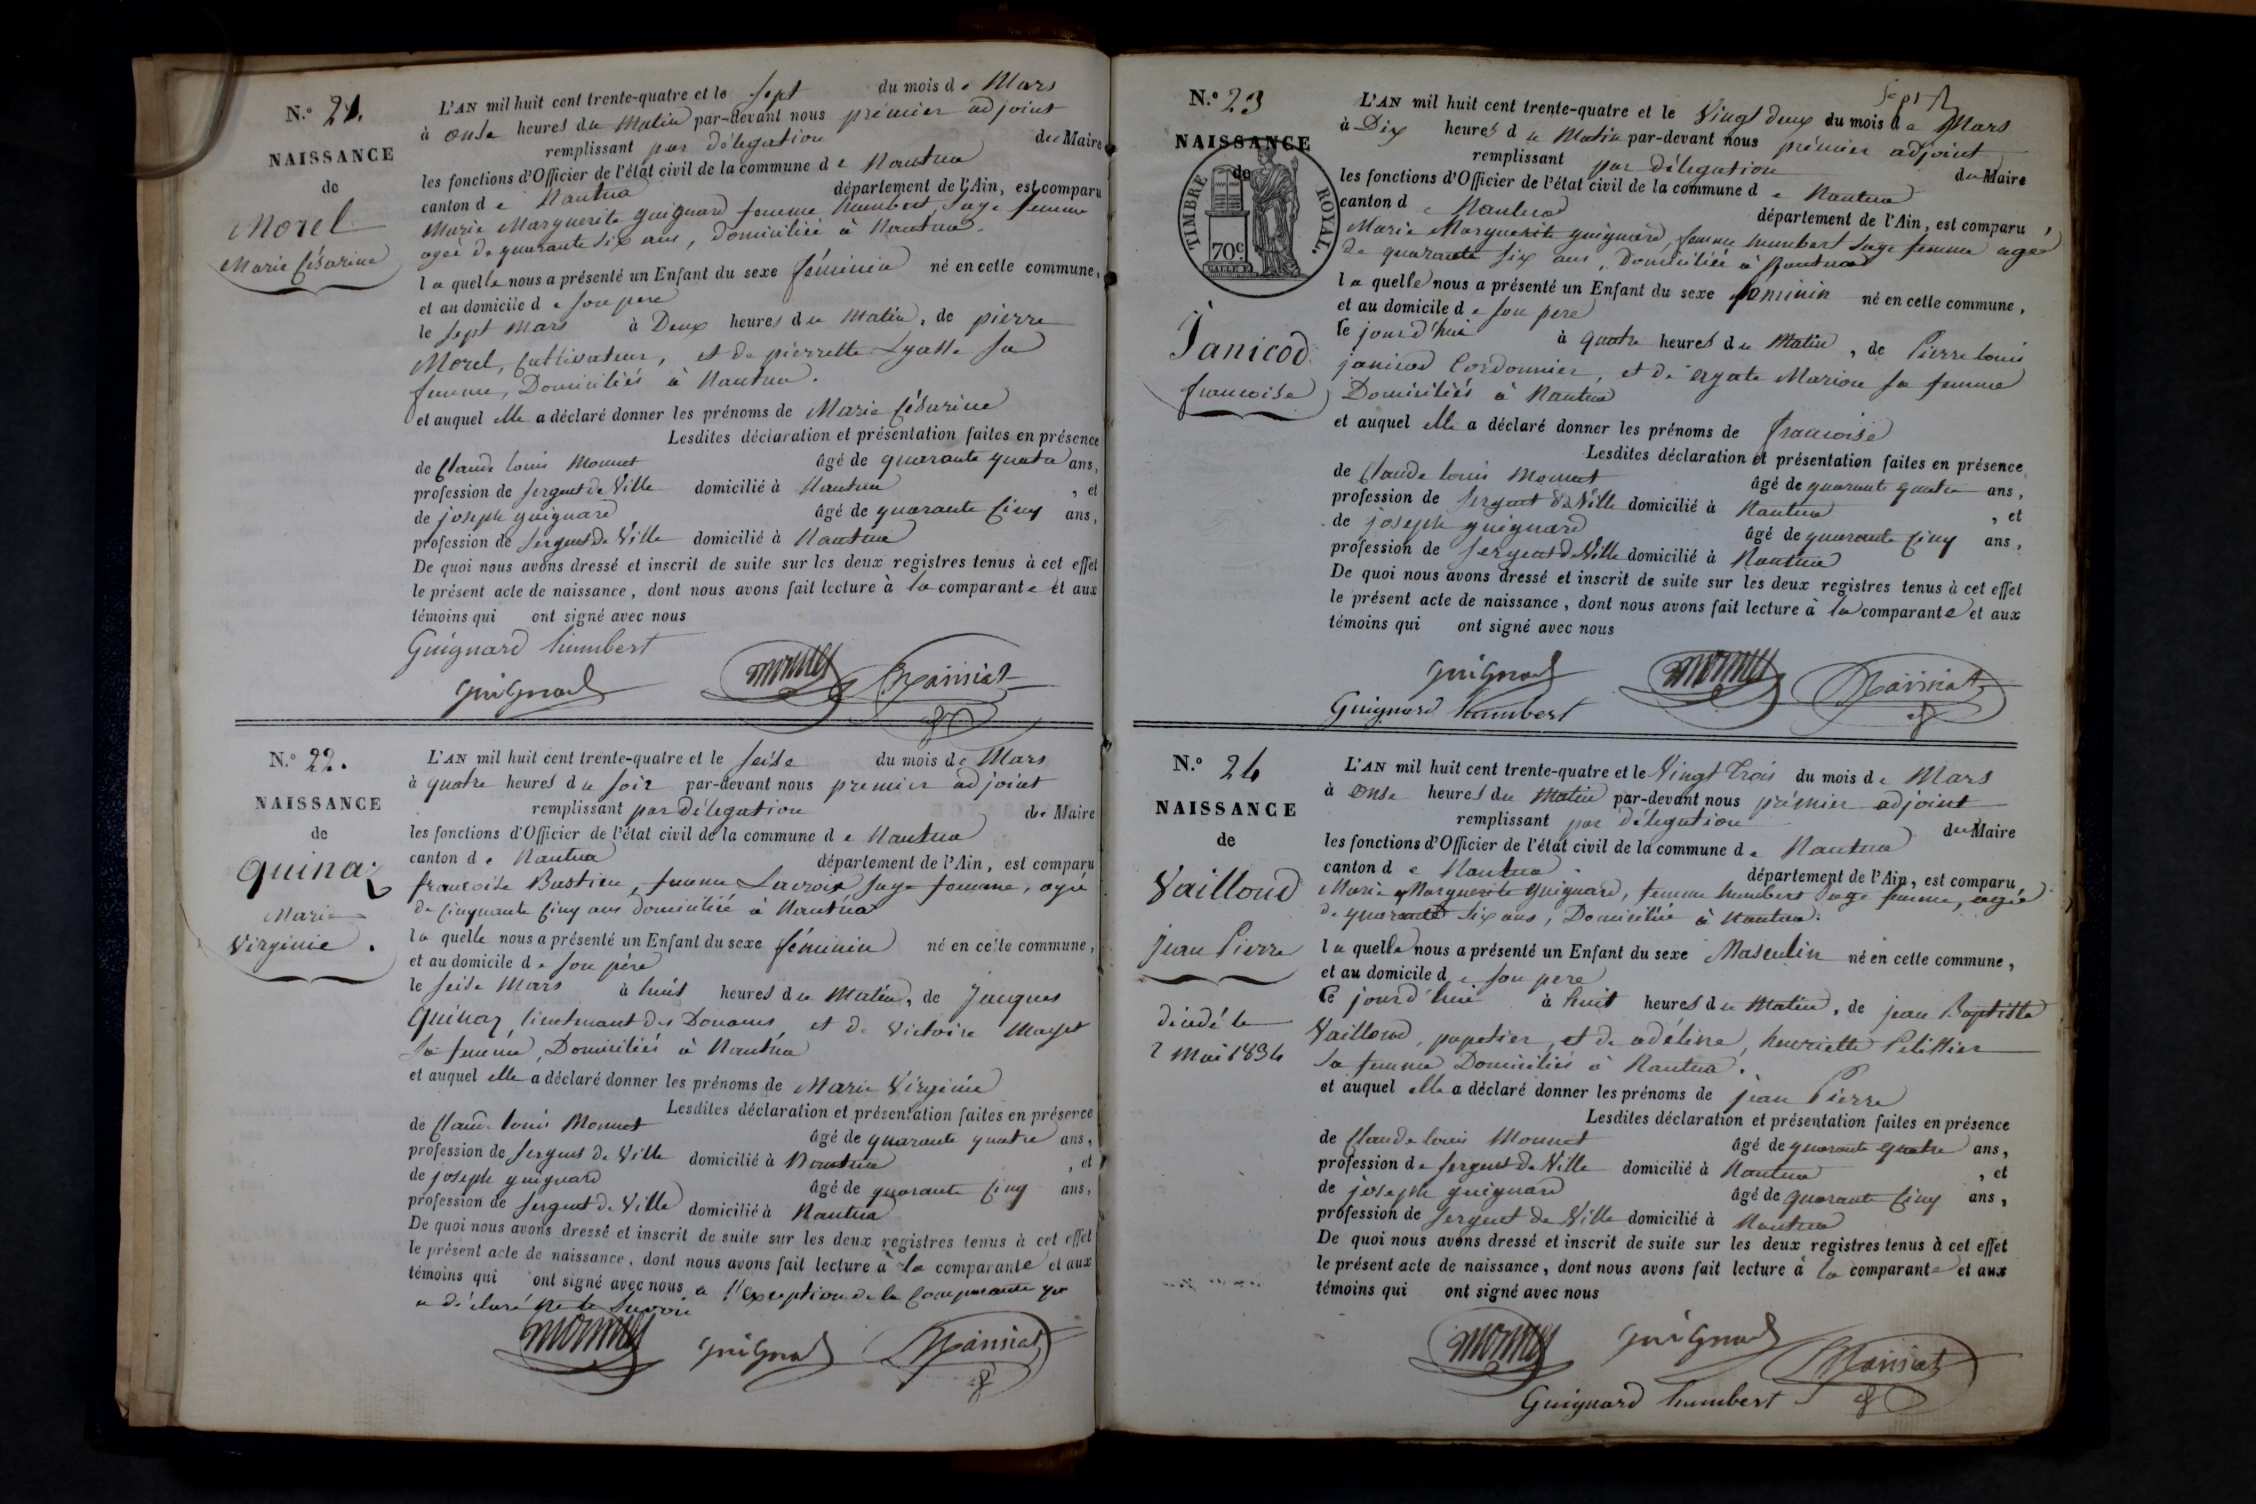 N.o 21.
NAISSANCE
de
Morel
Marie Césarine
L'AN mil huit cent trente-quatre et le sept du mois de Mars
à onse heures du Matin par-devant nous prémier adjoint
remplissant par délegation du Maire
les fonctions d'Officier de l'état civil de la commune de Nantua
canton de Nantua département de l'Ain, est comparu
Marie Marguerite guignard femme humbert sage femme
agée de quarante six ans, domiciliée à Nantua.
la quelle nous a présenté un Enfant du sexe féminin né en cette commune,
et au domicile de son pere
le sept Mars à Deux heures du Matin, de pierre
Morel, Cultivateur, et de pierrette Lyatte sa
femme, Domiciliés à Nantua.
et auquel elle a déclaré donner les prénoms de Marie Césarine
Lesdites déclaration et présentation faites en présence
de Claude louis Monnet âgé de quarante quatre ans,
profession de sergent de Ville domicilié à Nantua , et
de joseph guignard âgé de quarante Cinq ans,
profession de sergent de Ville domicilié à Nantua
De quoi nous avons dressé et inscrit de suite sur les deux registres tenus à cet effet
le présent acte de naissance, dont nous avons fait lecture à la comparante et aux
témoins qui ont signé avec nous
Guignard humbert
guignard monnet
N.o 22.
NAISSANCE
de
Quinaz
Marie
Virginie.
L'AN mil huit cent trente-quatre et le seise du mois de Mars
à quatre heures du soir par-devant nous premier adjoint
remplissant par Délegation du Maire
les fonctions d'Officier de l'état civil de la commune de Nantua
canton de Nantua département de l'Ain, est comparu
francoise Bastien, femme Lacroix sage femme, agée
de Cinquante Cinq ans domiciliée à Nantua
la quelle nous a présenté un Enfant du sexe féminin né en cette commune,
et au domicile de son pére
le seise Mars à huit heures du Matin, de Jacques
Quinaz, lieutenant des Douanes, et de Victoire
sa femme, Domiciliés à Nantua
et auquel elle a déclaré donner les prénoms de Marie Virginie
Lesdites déclaration et présentation faites en présence
de Claude louis Monnet âgé de quarante quatre ans,
profession de sergent de Ville domicilié à Nantua , et
de joseph guignard âgé de quarante Cinq ans,
profession de sergent de Ville domicilié à Nantua
De quoi nous avons dressé et inscrit de suite sur les deux registres tenus à cet effet
le présent acte de naissance, dont nous avons fait lecture à la comparante et aux
témoins qui ont signé avec nous a l'exception de la Comparante qui
a déclaré ne le savoir
monnet guignard
sept
N.o 23
NAISSANCE
de
TIMBRE ROYAL.
70c.
Janicod
francoise
L'AN mil huit cent trente-quatre et le Vingt deux du mois de Mars
à Dix heures du Matin par-devant nous prémier adjoint
remplissant par délegation du Maire
les fonctions d'Officier de l'état civil de la commune de Nantua
canton de Nantua département de l'Ain, est comparu,
Marie Marguerite guignard, femme humbert sage femme agée
de quarante six ans, Domiciliée à Nantua
la quelle nous a présenté un Enfant du sexe féminin né en cette commune,
et au domicile de son pere
le jourd'hui à quatre heures du Matin, de Pierre louis
janicod Cordonnier, et de agate Marion sa femme
Domiciliés à Nantua
et auquel elle a déclaré donner les prénoms de francoise
Lesdites déclaration et présentation faites en présence
de Claude louis Monnet âgé de quarante quatre ans,
profession de sergent de Ville domicilié à Nantua , et
de joseph guignard âgé de quarante Cinq ans,
profession de sergent de Ville domicilié à Nantua
De quoi nous avons dressé et inscrit de suite sur les deux registres tenus à cet effet
le présent acte de naissance, dont nous avons fait lecture à la comparante et aux
témoins qui ont signé avec nous
guignard monnet
Guignard humbert
N.o 24
NAISSANCE
de
Vailloud
jean Pierre
décédé le
2 Mai 1834
L'AN mil huit cent trente-quatre et le Vingt Trois du mois de Mars
à onse heures du Matin par-devant nous prémier adjoint
remplissant par délegation du Maire
les fonctions d'Officier de l'état civil de la commune de Nantua
canton de Nantua département de l'Ain, est comparu,
Marie Marguerite guignard, femme humbert sage femme, agée
de quarante six ans, Domiciliée à Nantua.
la quelle nous a présenté un Enfant du sexe Masculin né en cette commune,
et au domicile de son pere
le jourd'hui à huit heures du Matin, de jean Baptiste
Vailloud, papetier, et de adéline, henriette Pelissier
sa femme Domiciliés à Nantua.
et auquel elle a déclaré donner les prénoms de jean Pierre
Lesdites déclaration et présentation faites en présence
de Claude louis Monnet âgé de quarante quatre ans,
profession de sergent de Ville domicilié à Nantua , et
de joseph guignard âgé de quarante Cinq ans,
profession de sergent de Ville domicilié à Nantua
De quoi nous avons dressé et inscrit de suite sur les deux registres tenus à cet effet
le présent acte de naissance, dont nous avons fait lecture à la comparante et aux
témoins qui ont signé avec nous
monnet guignard
Guignard humbert